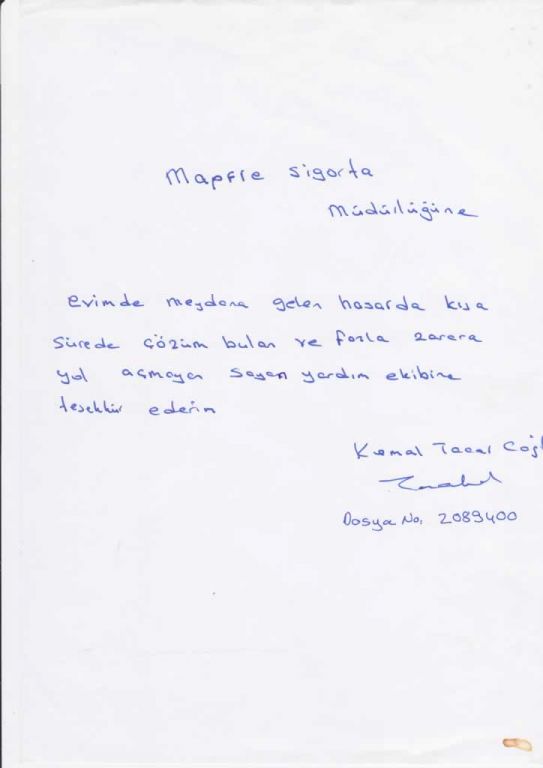 Mapfre sigorta
Müdürlüğüne
evimde meydana gelen hasarda kısa
sürede çözüm bulan ve fazla zarara
yol açmayan sayan yardım ekibine
teşekkür ederim
Kemal
Dosya No: 2089400